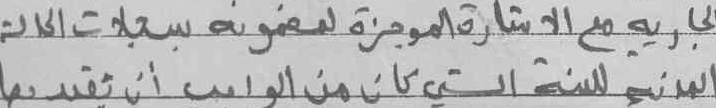 الجاريه مع الاشارة الموجزة لمضمونه بسجلات الحالة
المدنية للسنة التي كان من الواجب أن تقيد بها